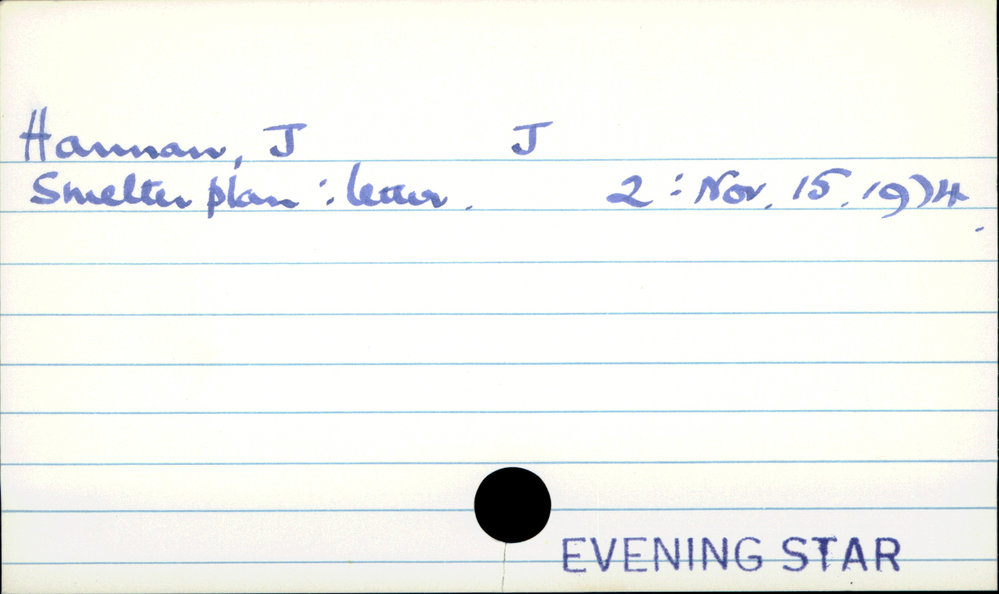 Hannan, J J
Smelter plan : letter. 2 : Nov. 15. 1974.
EVENING STAR